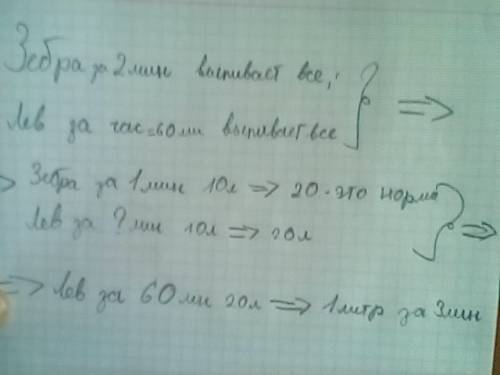 Зебра за 2 мин выпивает все,
Лев за час=60ми выпивает все
Зебра за 1 мин 10л => 20-это норма
Лев за ? мин 10л => 20л
=> Лев за 60 ми 20л => 1 литр за 3мин